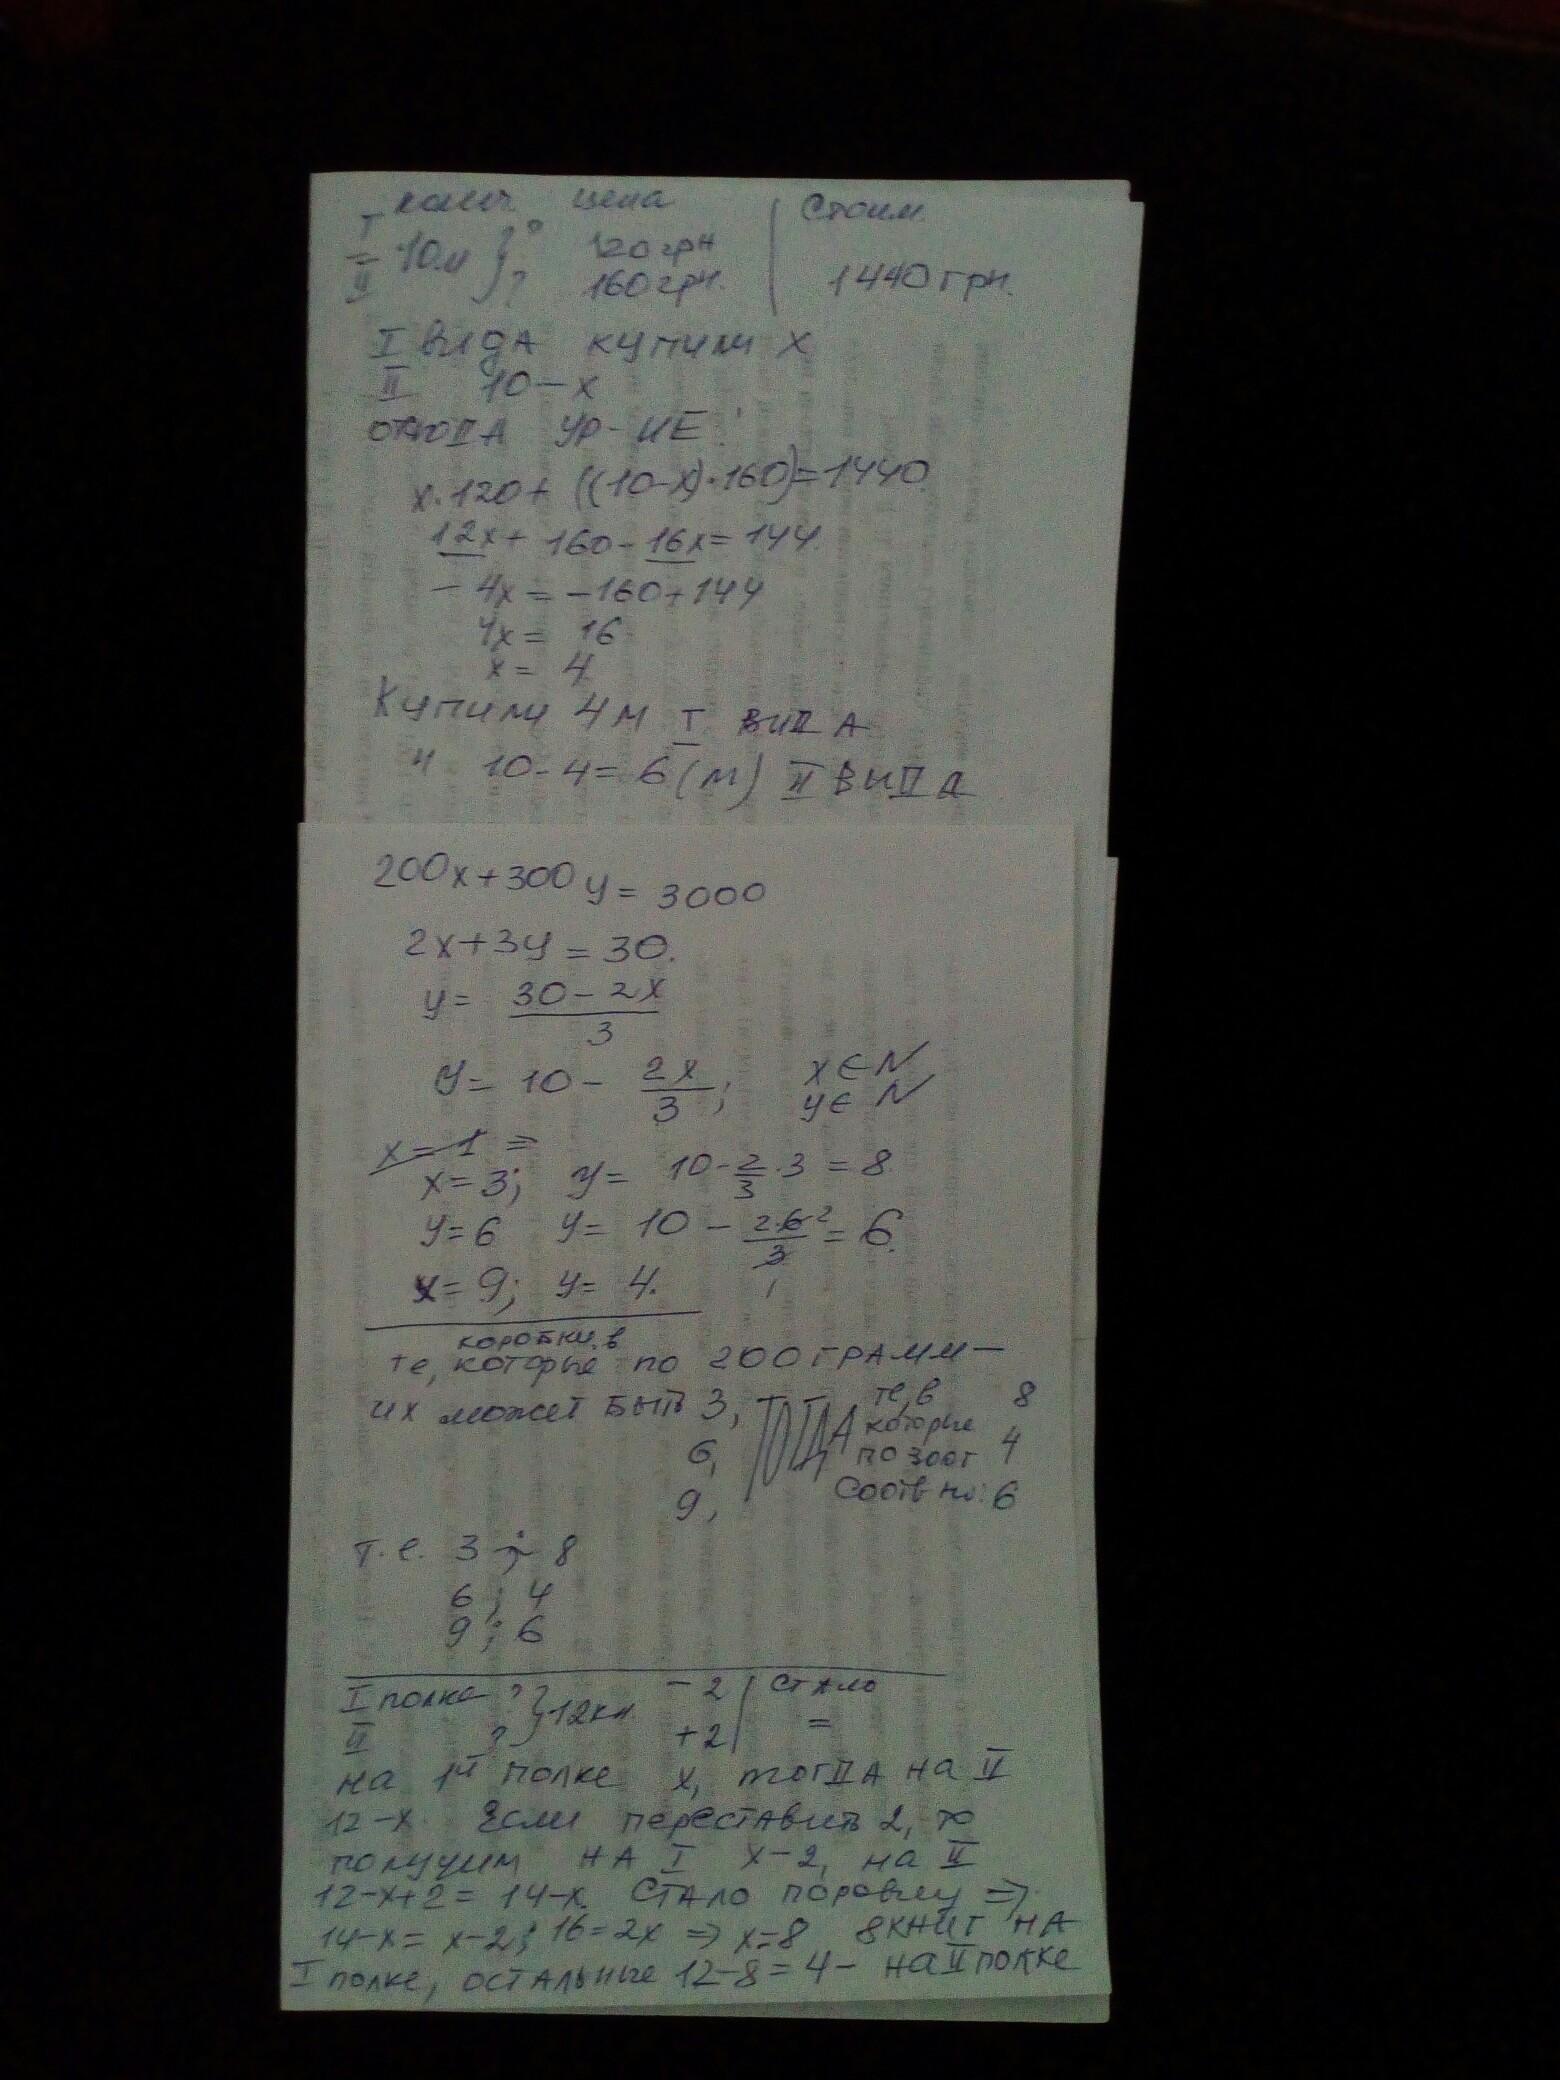 колич. цена Стоим.
I ? 120 грн
10м
II ? 160 грн. 1440 грн.
I вида купили x
II 10-x
ур-ие:
x·120+((10-x)·160)=1440.
12x+160-16x=144.
-4x=-160+144
4x= 16
x= 4
Купили 4м I вида
" 10-4=6(м) II вида
200x+300y=3000
2x+3y=30.
y= (30-2x)/3
y= 10- 2x/3; x∈N
y∈N
x=1 =
x=3; y= 10-2/3·3=8
y=6 y= 10- 2·6²/3 1 =6.
x=9; y= 4.
коробки, в
те, которые по 200 грамм-
их может быть 3, тогда те, в которые по 300г соотв но: 8
6, 4
9, 6
т.е. 3 ; 8
6 ; 4
9 ; 6
I полка ? }12кн. -2 | Стало
II ? +2 | =
на 1й полке x, тогда на II
12-x. Если переставить 2, то
получим на I x-2, на II
12-x+2=14-x. Стало поровну =>
14-x=x-2; 16=2x => x=8 8 книг на
I полке, остальные 12-8=4- на II полке